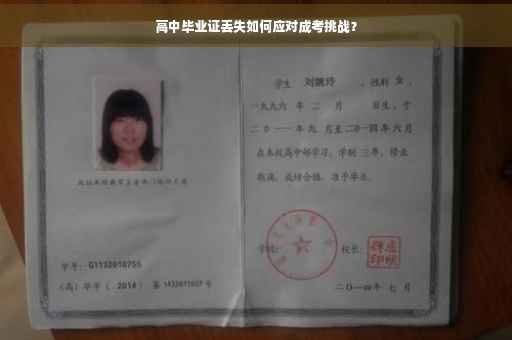 高中毕业证丢失如何应对成考挑战？
学生 刘婉玲 ，性别 女 ，
一九九六 年 二 月 日生，于
二〇一一 年 九 月至 二〇一四 年 六 月
在本校高中部学习，学制 三年，修业
期满，成绩合格，准予毕业。
学号： G1132010755
（高）毕字（ 2014 ）第 1432011607 号
学校：
校长：
二〇一四年 七 月